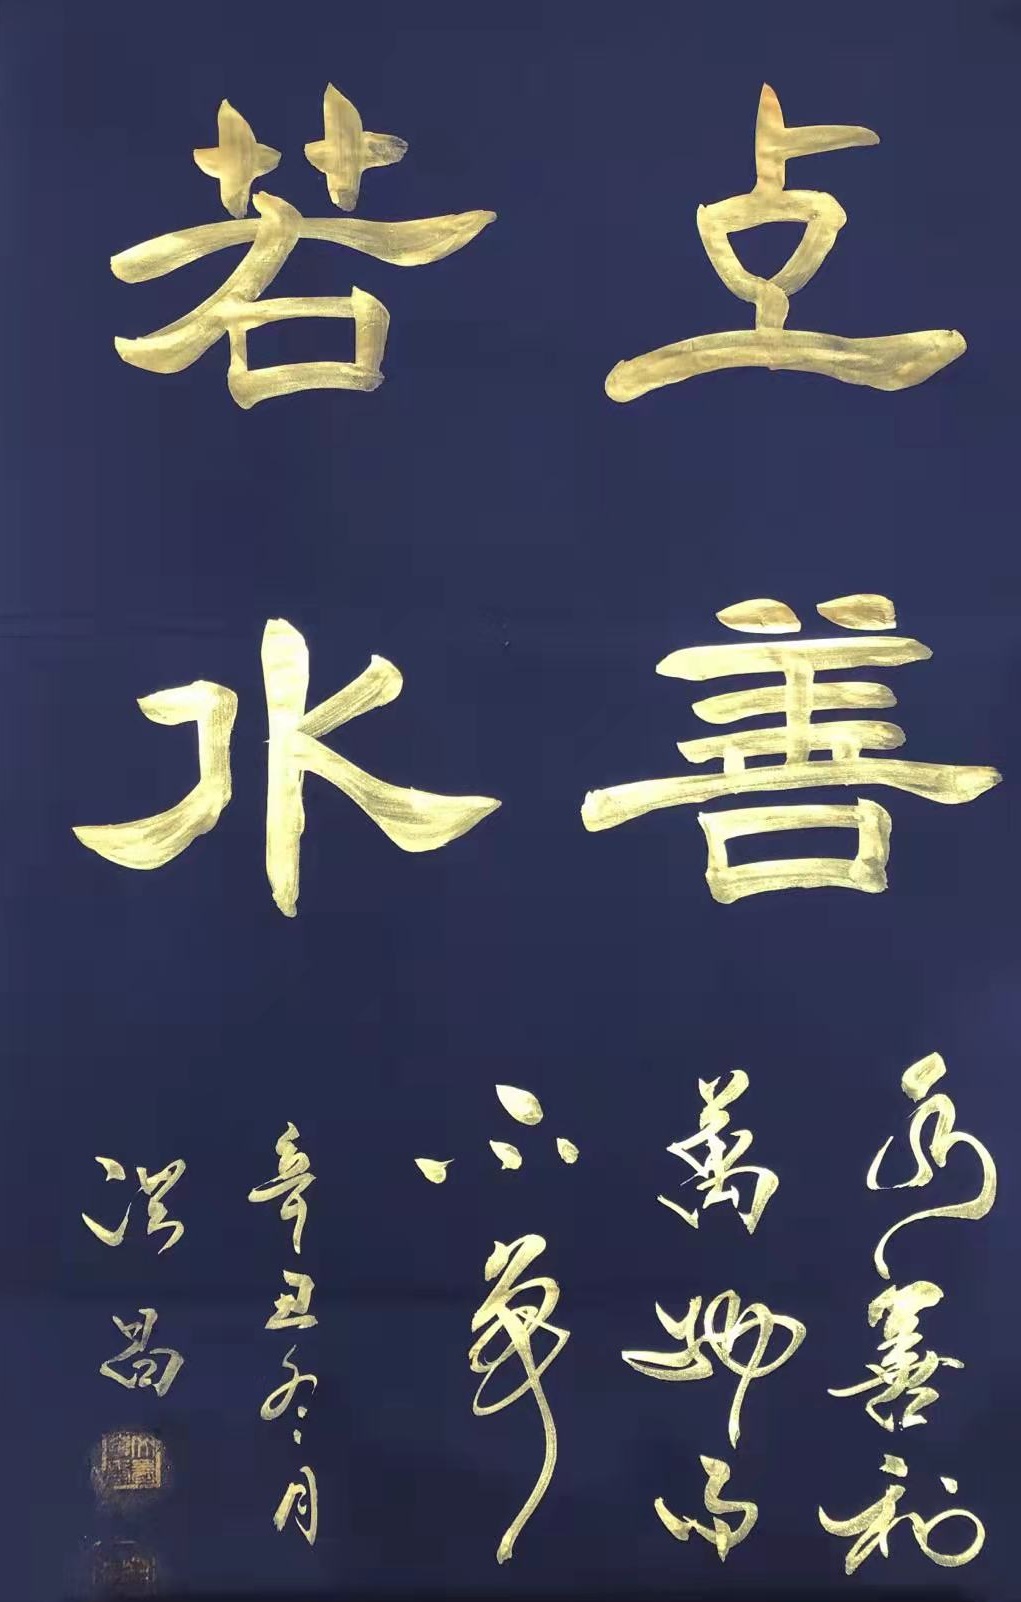 上善
若水
水善利
萬物而
不爭
辛丑冬月
洪昌